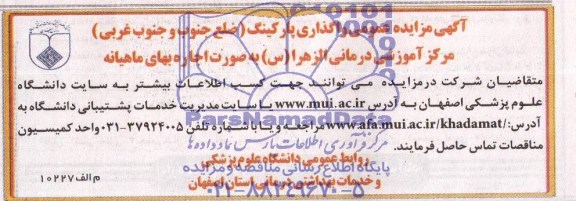 آگهی مزایده عمومی واگذاری پارکینگ (ضلع جنوب و جنوب غربی)
مرکز آموزشی درمانی الزهرا (س) به صورت اجاره بهای ماهیانه
متقاضیان شرکت در مزایده می توانند جهت کسب اطلاعات بیشتر به سایت دانشگاه
علوم پزشکی اصفهان به آدرس www.mui.ac.ir یا سایت مدیریت خدمات پشتیبانی دانشگاه به
آدرس: www.afa.mui.ac.ir/khadamat/ مراجعه و یا با شماره تلفن ۳۷۹۲۴۰۰۵-۰۳۱ واحد کمیسیون
مناقصات تماس حاصل فرمایند.
روابط عمومی دانشگاه علوم پزشکی
و خدمات بهداشتی درمانی استان اصفهان
م الف ۱۰۲۲۷
ParsNamadData
مرکز فرآوری اطلاعات پارس نماد داده ها
پایگاه اطلاع رسانی مناقصه و مزایده
۰۲۱-۸۸۳۴۹۶۷۰-۵